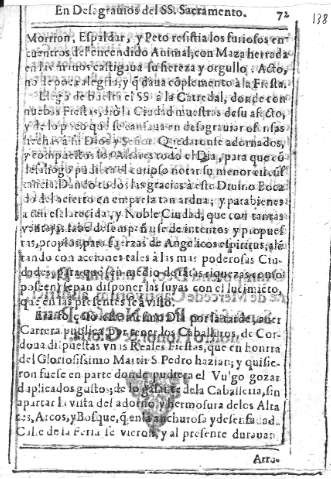 En Desagravios del SS. Sacramento. 72
138
Morrion, Espaldar, y Peto resistia los furiosos en
cuentros del encendido Animal, con Maza herrada
en las manos castigava su fiereza y orgullo: Acto,
no de poca alegria, y q̃ dava cõplemento à la Fiesta.
Llegò de buelta el SS. à la Catredal, donde con
nuebas Fiestas, hizo la Ciudad muestras de su afecto,
y de lo poco que se cansava en desagraviar ofensas
hechas à su Dios y Señor. Quedaronse adornados,
y compuestos los Altares todo el Dia, para que cõ
desahogo pudiera el curioso notar su menor circũs
tancia. Dando todos las gracias à este Divino Boca
do del acierto en empressa tan ardua; y parabienes
a tan esclarecida, y Noble Ciudad, que con tantas
ventajas desempeñ se de intentos y propues
tas, propias para fuerzas de Angelicos espiritus, alẽ
tando con acciones tales à las mas poderosas Ciu
dades, para que (en medio de tantas riquezas como
posseen) sepan disponer las suyas con el lucimiẽto,
que en las presentes se à visto.
este mismo Dia por la tarde, aver
Carrera publica Por tener los Caballeros, de Cor-
dona dispuestas vnas Reales Fiestas, que en honrra
del Gloriosissimo Martir S. Pedro hazian; y quisie-
ron fuese en parte donde pudiera el Vulgo gozar
duplicados gustos; de lo galante de la Caballeria, sin
apartar la vista del adorno, y hermosura de los Alta
res, Arcos, y Bosque, q̃ en la anchurosa y desenfadad
Calle de la Feria se vieron, y al presente duravan.
Arro-